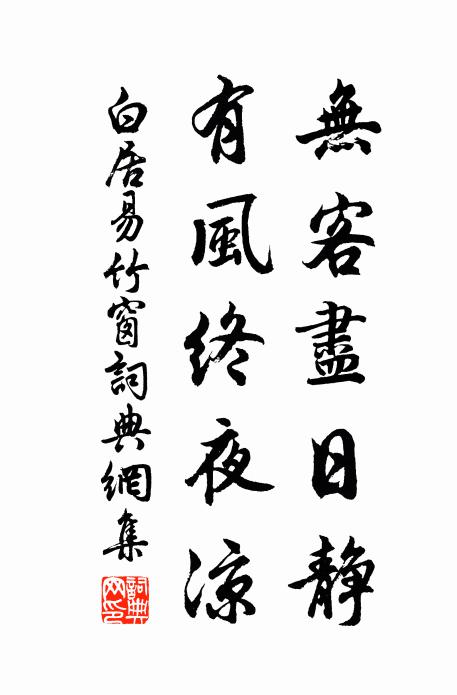 無客盡日静
有風終夜涼
白居易竹窗詞典網集
詞典網印